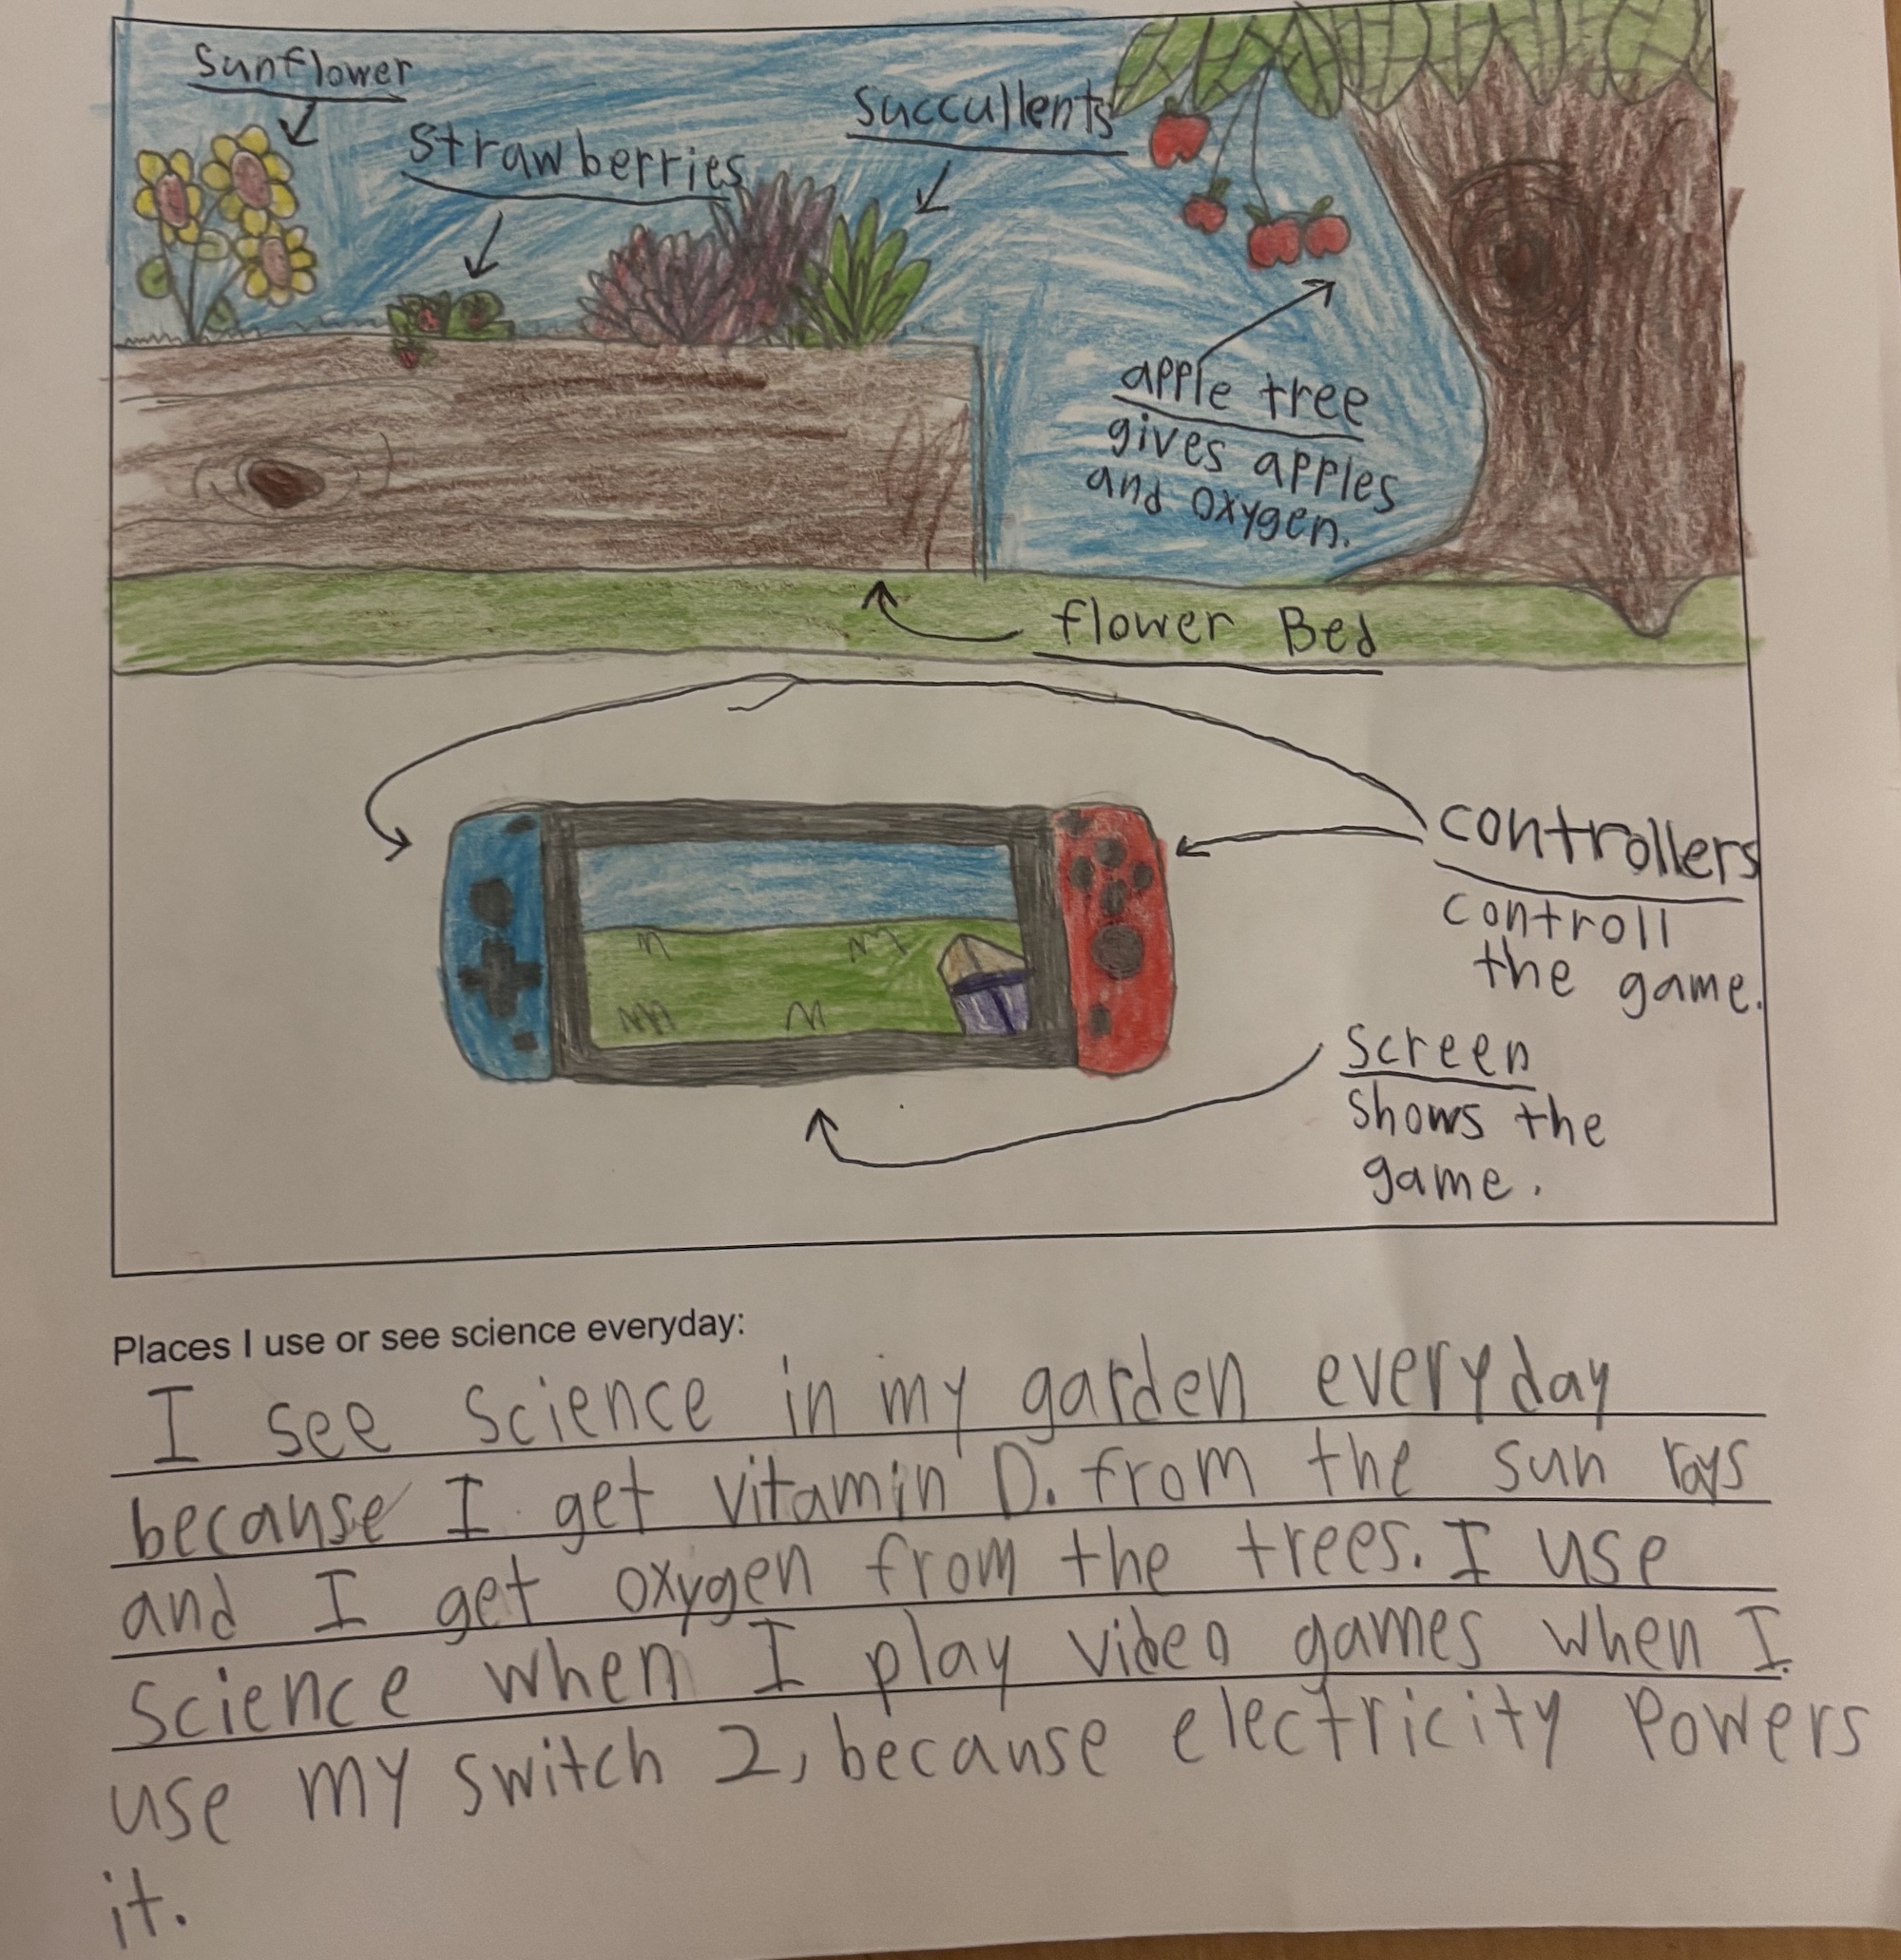 Sunflower
Strawberries
Succullents
apple tree
gives apples
and oxygen.
flower Bed
controllers
controll
the game.
screen
shows the
game.
Places I use or see science everyday:
I see science in my garden everyday
because I get vitamin D. from the sun rays
and I get oxygen from the trees. I use
science when I play video games when I
use my switch 2, because electricity powers
it.